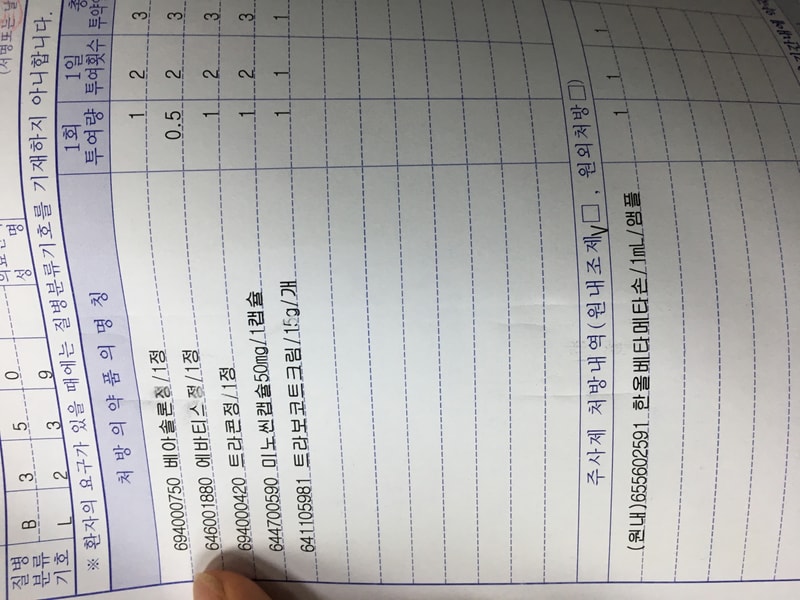 (서명또는날
질병
분류
기호
B 3 5 0
L 2 3 9
성 명
※ 환자의 요구가 있을 때에는 질병분류기호를 기재하지 아니합니다.
처 방 의 약 품 의 명 칭
1회
투여량
1일
투여횟수
총
투약
694000750 베아솔론정/1정 1 2 3
646001880 에바티스정/1정 0.5 2 3
694000420 트라콘정/1정 1 2 3
644700590 미노씬캡슐50mg/1캡슐 1 2 3
641105981 트라보코트크림/15g/개 1 1 1
주사제 처방내역(원내조제 V□ , 원외처방 □)
(원내)655602591 한올베타메타손/1mL/앰플 1 1 1